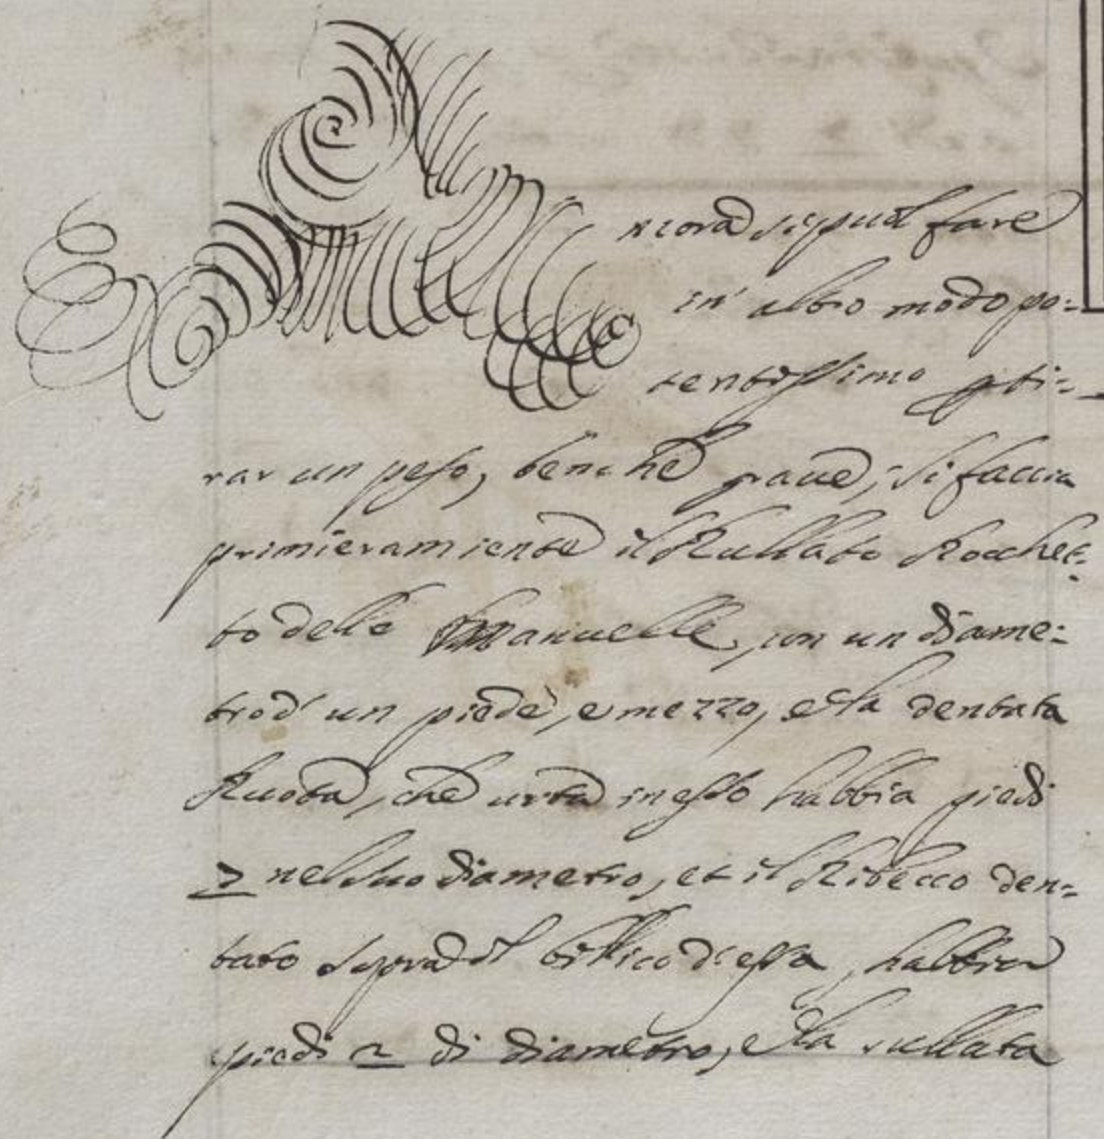 Ancora si può fare
in' altro modo po=
tentissimo p ti=
rar un peso, benche graue, si faccia
primieramiente il Rullato Rochet=
to delle Manuelle, con un diame=
tro d' un piede, e mezzo, e la dentata
Ruota, che urta in esso habbia piedi
7 nel suo diametro, et il Ribecco den=
tato sopra il billico d' essa, habbia
piedi 2 di diametro, e la rullata